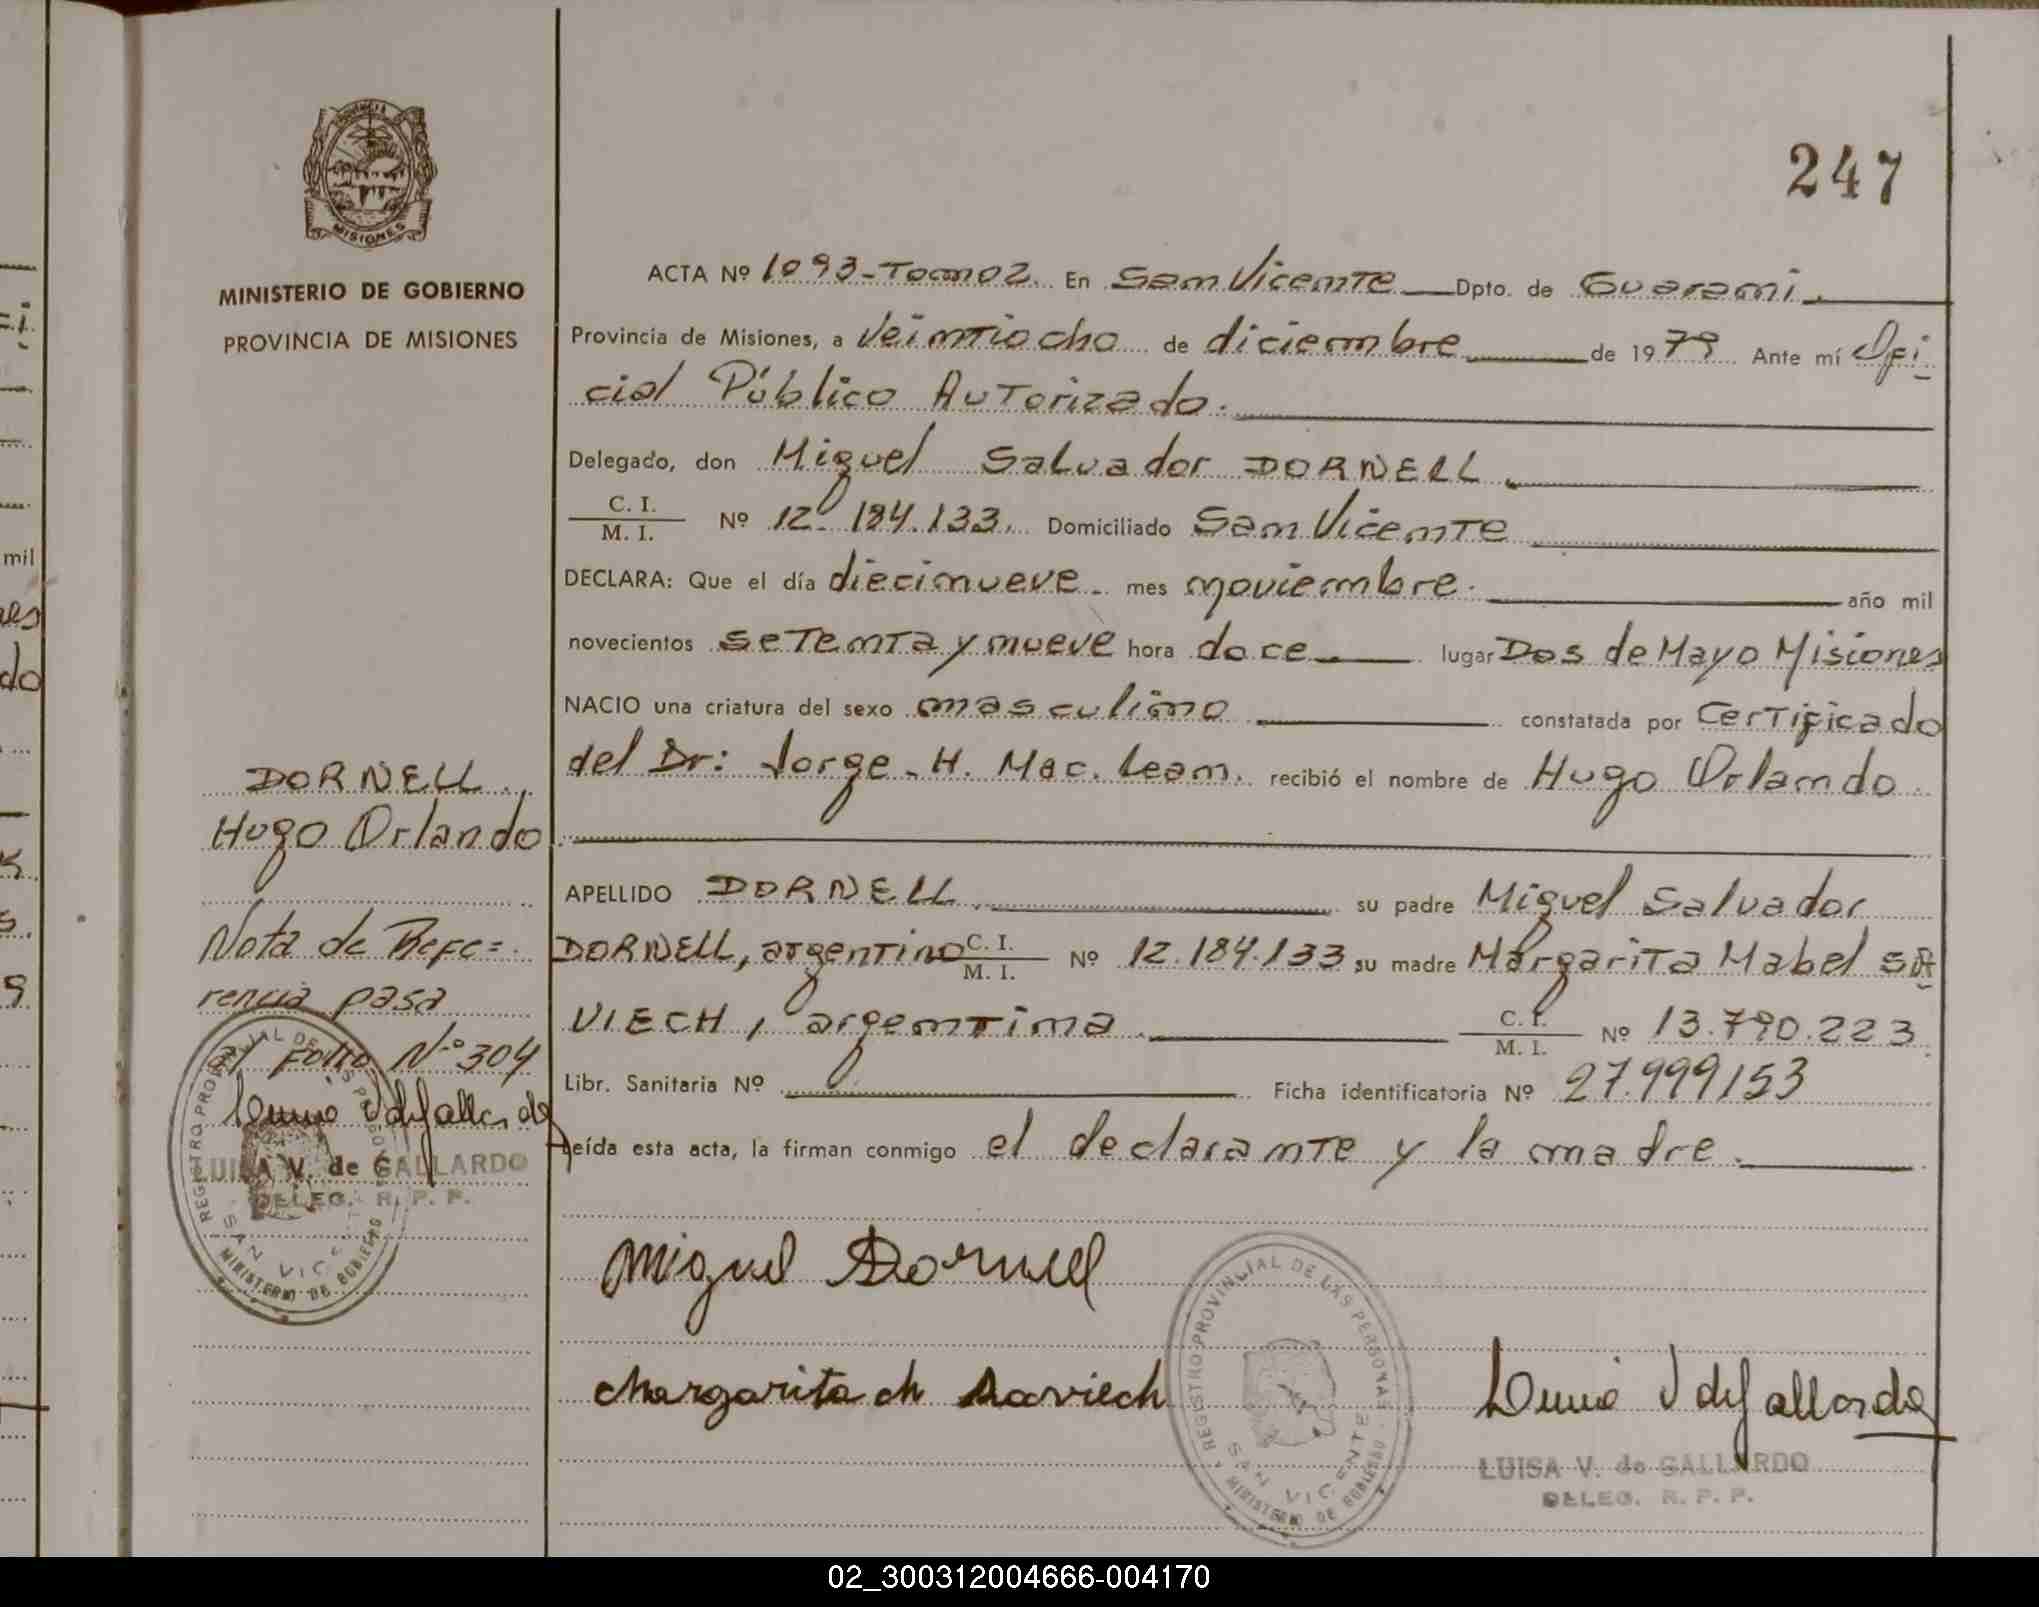 247
PROVINCIA DE
MISIONES
MINISTERIO DE GOBIERNO
PROVINCIA DE MISIONES
ACTA Nº 1093-Tomo 2. En San Vicente Dpto. de Guaraní.
Provincia de Misiones, a Veintiocho de diciembre de 1979 Ante mí Ofi
cial Público Autorizado.
Delegado, don Miguel Salvador DORNELL.
C. I.
M. I.
Nº 12.184.133. Domiciliado San Vicente
DECLARA: Que el día diecinueve. mes noviembre. año mil
novecientos setenta y nueve hora doce. lugar Dos de Mayo Misiones
NACIO una criatura del sexo masculino constatada por Certificado
del Dr: Jorge. H. Mac. Lean. recibió el nombre de Hugo Orlando
APELLIDO DORNELL su padre Miguel Salvador
DORNELL, argentino C. I.
M. I. Nº 12.184.133 su madre Margarita Mabel SA
VIECH, argentina. C. I.
M. I. Nº 13.790.223
Libr. Sanitaria Nº Ficha identificatoria Nº 27.999153
Leída esta acta, la firman conmigo el declarante y la madre.
DORNELL.
Hugo Orlando
Nota de Refe=
rencia pasa
al Folio Nº 304
LUISA V. de GALLARDO
DELEG. R. P. P.
REGISTRO PROVINCIAL DE LAS PERSONAS
SAN VICENTE
MINISTERIO DE GOBIERNO
Miguel Dornell
Margarita M Saviech
REGISTRO PROVINCIAL DE LAS PERSONAS
SAN VICENTE
MINISTERIO DE GOBIERNO
LUISA V. de GALLARDO
DELEG. R. P. P.
mil
do
9
02_300312004666-004170